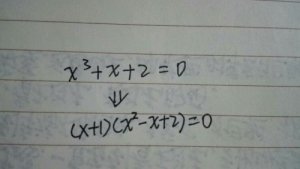 x³+x+2=0
⇓
(x+1)(x²-x+2)=0